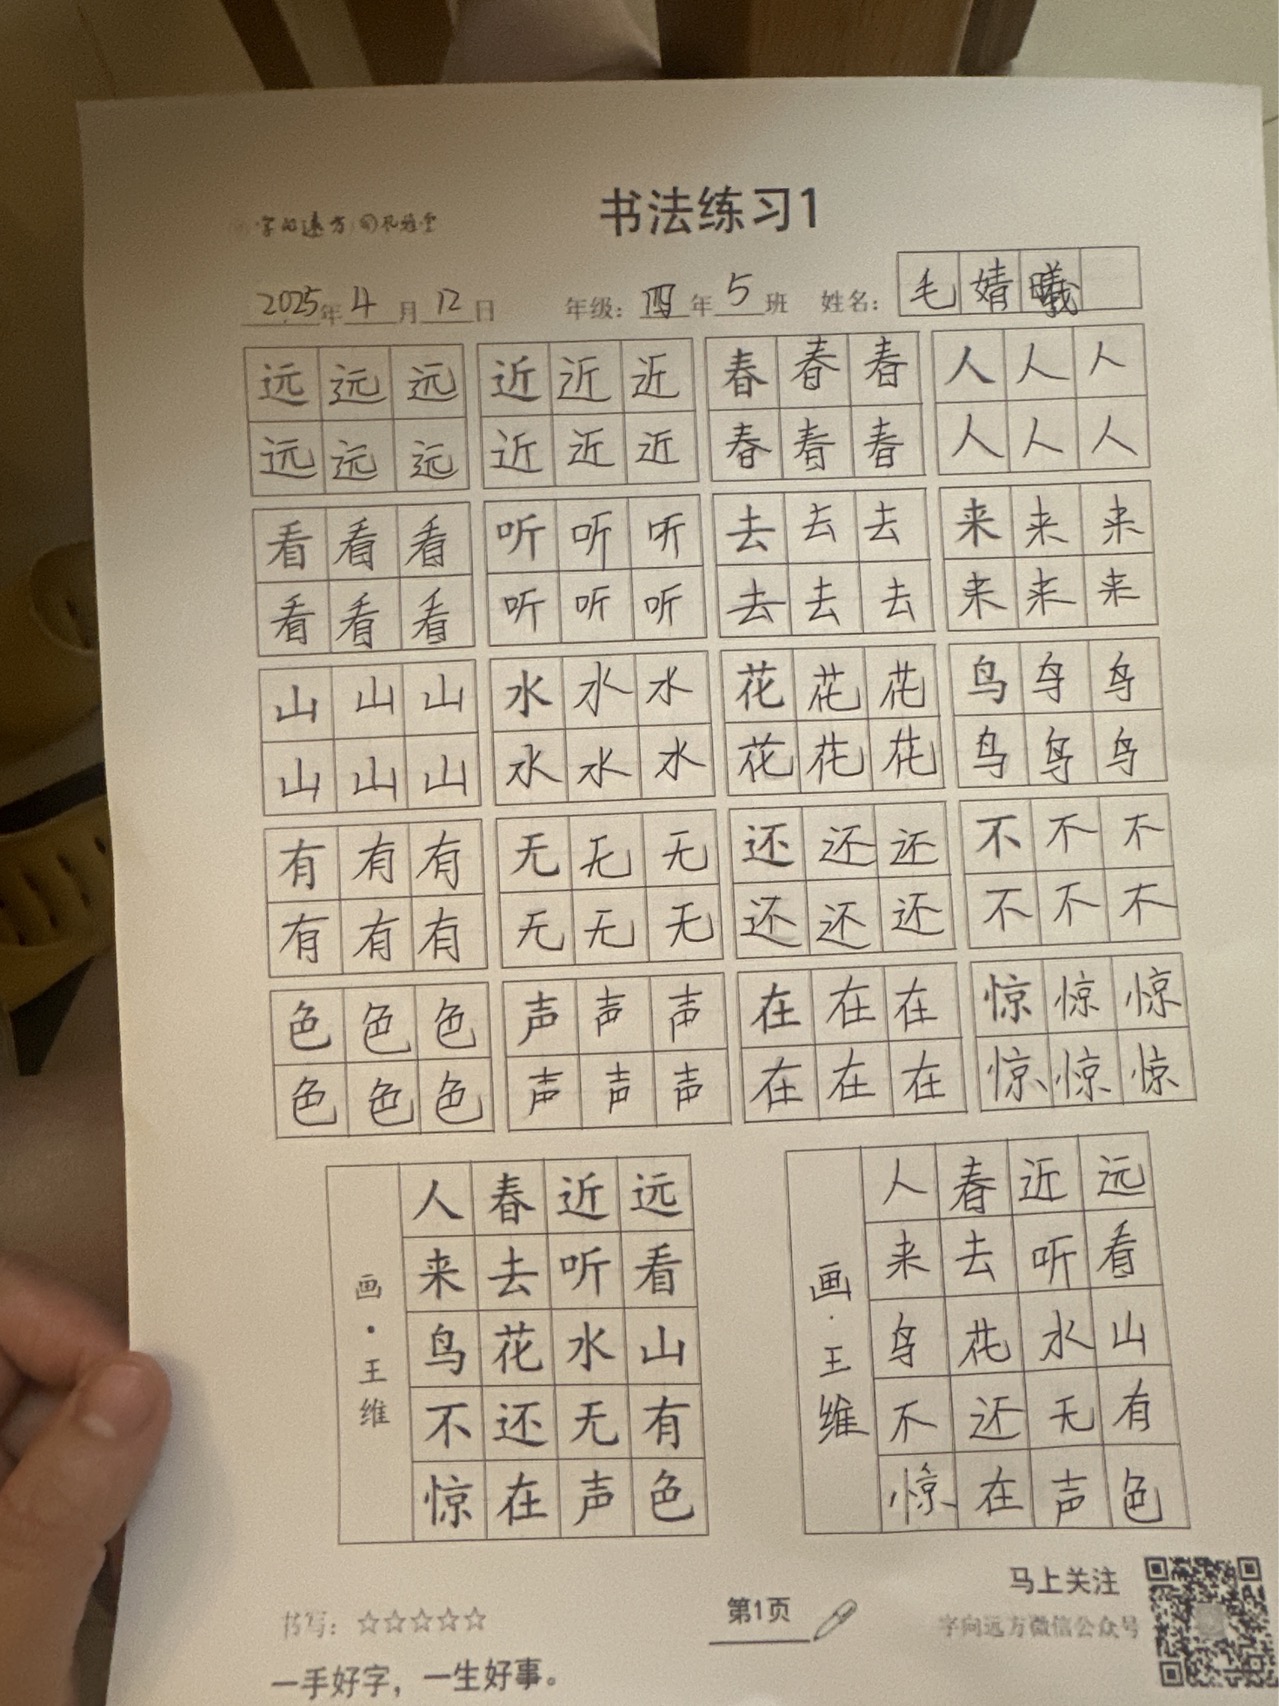 书法练习1
字向远方
2025年4月12日 年级：四年5班 姓名：毛婧曦
远远远 近近近 春春春 人人人
远远远 近近近 春春春 人人人
看看看 听听听 去去去 来来来
看看看 听听听 去去去 来来来
山山山 水水水 花花花 鸟鸟鸟
山山山 水水水 花花花 鸟鸟鸟
有有有 无无无 还还还 不不不
有有有 无无无 还还还 不不不
色色色 声声声 在在在 惊惊惊
色色色 声声声 在在在 惊惊惊
远看山有色
近听水无声
春去花还在
人来鸟不惊
画·王维
远看山有色
近听水无声
春去花还在
人来鸟不惊
画·王维
书写：☆☆☆☆☆
第1页
马上关注
字向远方微信公众号
一手好字，一生好事。